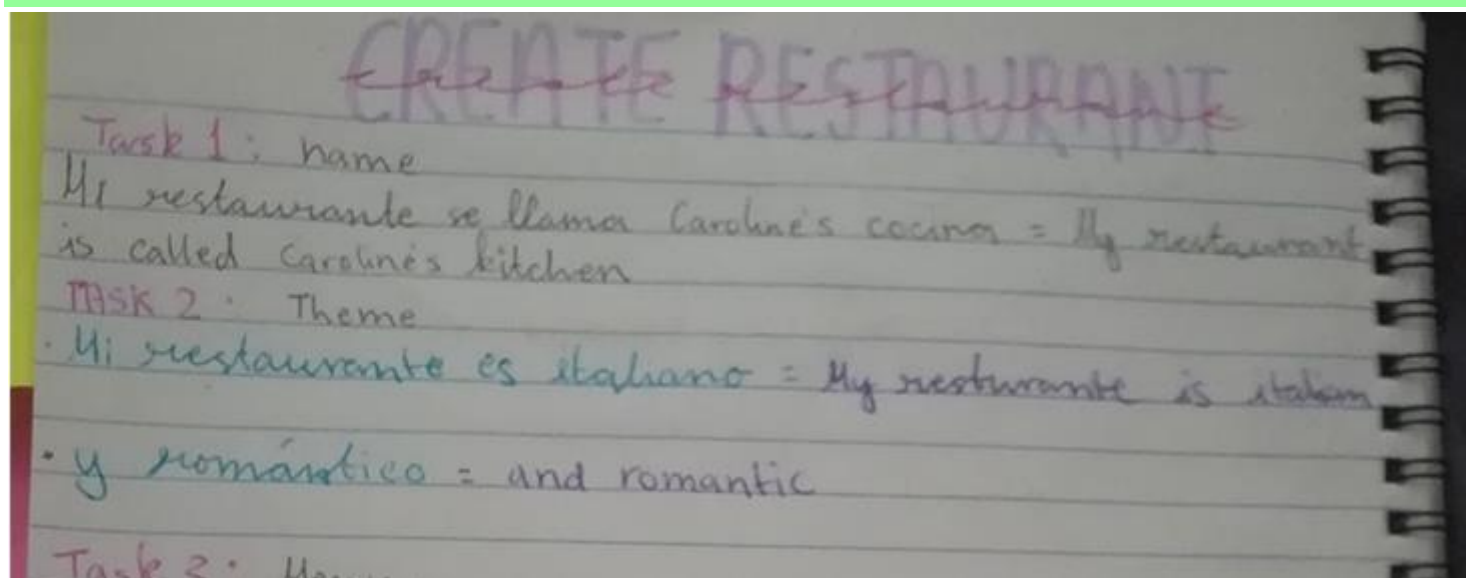 CREATE RESTAURANT
Task 1: name
Mi restaurante se llama Caroline's cocina = My restaurant
is called Caroline's kitchen
TASK 2: Theme
· Mi restaurante es italiano = My resturante is italian
· y romántico = and romantic
Task 3: